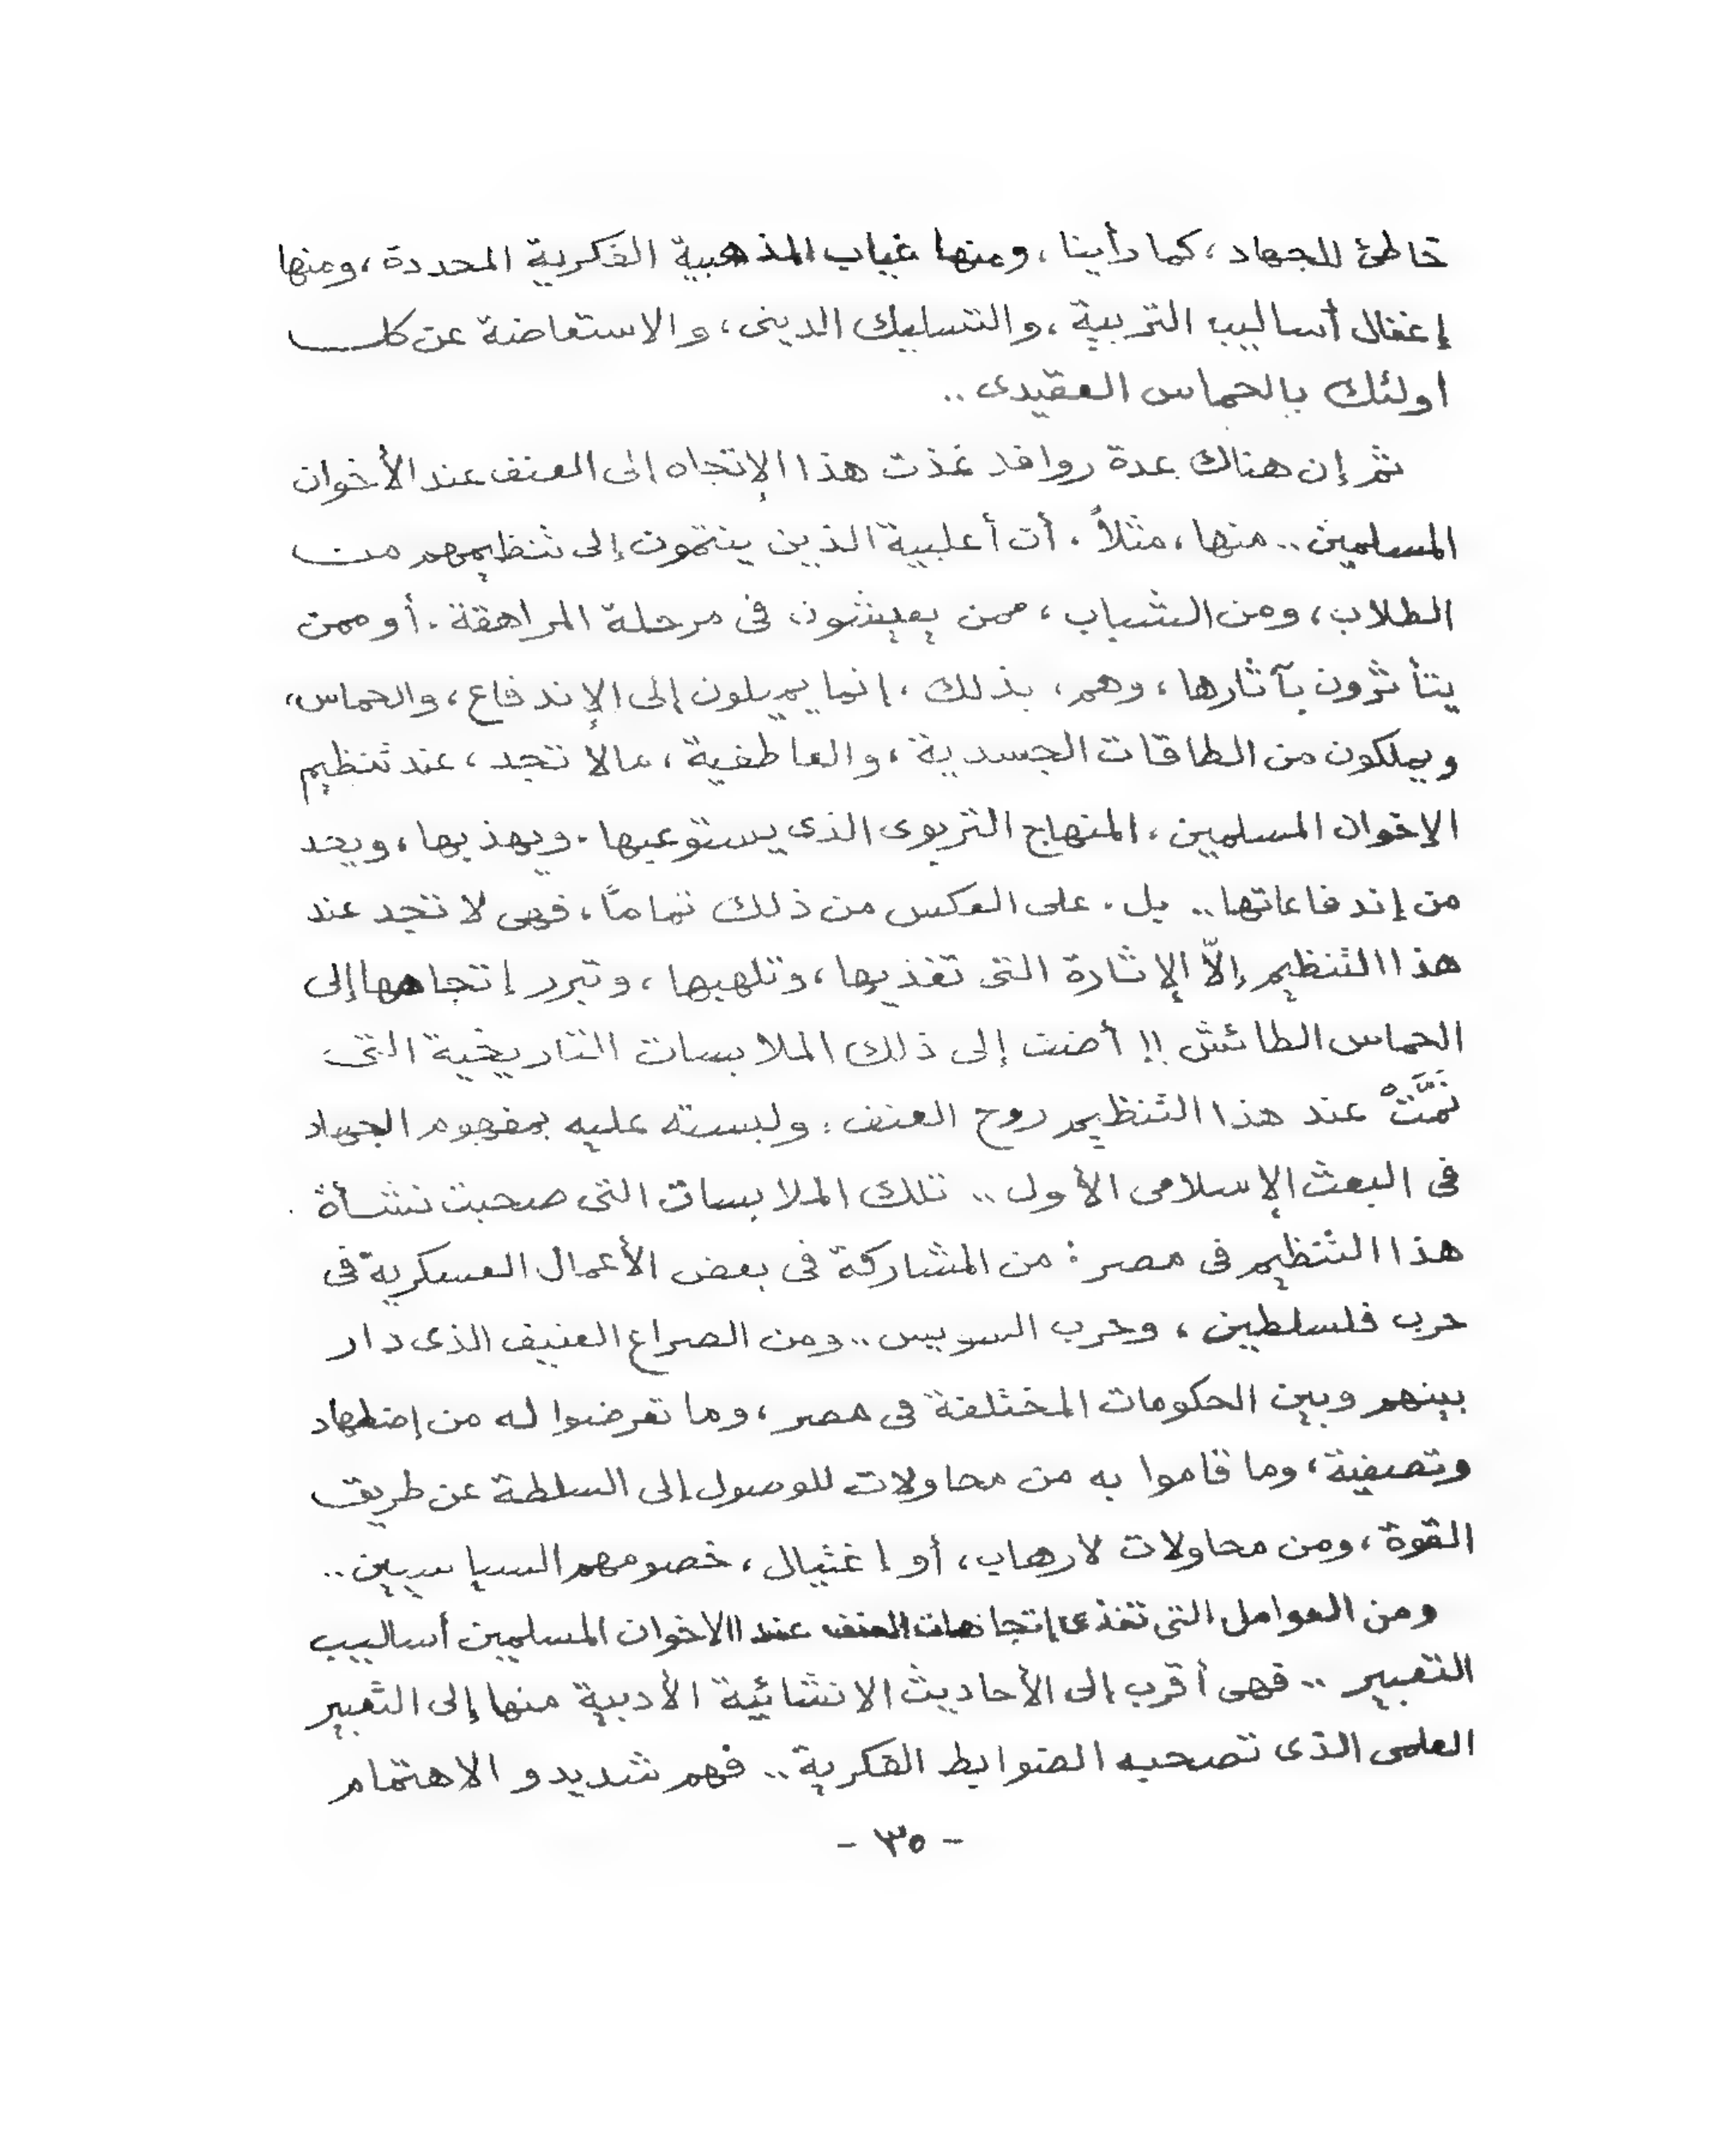 خاطئ للجهاد ، كما رأينا ، ومنها غياب المذهبية الفكرية المحددة ، ومنها
إغفال أساليب التربية ، والتسليك الدينى ، والاستعاضة عن كل
اولئك بالحماس العقيدى ..
ثم إن هناك عدة روافد غذت هذا الإتجاه إلى العنف عند الأخوان
المسلمين .. منها ، مثلاً ، أن أغلبية الذين ينتمون إلى تنظيمهم من
الطلاب ، ومن الشباب ، ممن يعيشون فى مرحلة المراهقة . أو ممن
يتأثرون بآثارها ، وهم ، بذلك ، إنما يميلون إلى الإندفاع ، والحماس ،
ويملكون من الطاقات الجسدية ، والعاطفية ، مالا تجد ، عند تنظيم
الإخوان المسلمين ، المنهاج التربوى الذى يستوعبها . ويهذبها ، ويحد
من إندفاعاتها .. بل . على العكس من ذلك تماماً ، فهى لا تجد عند
هذا التنظيم إلاّ الإثارة التى تغذيها ، وتلهبها ، وتبرر إتجاهها إلى
الحماس الطائش !! أضف إلى ذلك الملابسات التاريخية التى
نَمَّتْ عند هذا التنظيم روح العنف ، ولبسته عليه بمفهوم الجهاد
فى البعث الإسلامى الأول .. تلك الملابسات التى صحبت نشأة
هذا التنظيم فى مصر : من المشاركة فى بعض الأعمال العسكرية فى
حرب فلسطين ، وحرب السويس .. ومن الصراع العنيف الذى دار
بينهم وبين الحكومات المختلفة فى مصر ، وما تعرضوا له من إضطهاد
وتصفية ، وما قاموا به من محاولات للوصول إلى السلطة عن طريق
القوة ، ومن محاولات لارهاب ، أو إغتيال ، خصومهم السياسيين ..
ومن العوامل التى تغذى إتجاهات العنف عند الاخوان المسلمين أساليب
التعبير .. فهى أقرب إلى الأحاديث الانشائية الأدبية منها إلى التعبير
العلمى الذى تصحبه الضوابط الفكرية .. فهم شديدو الاهتمام
- ٣٥ -